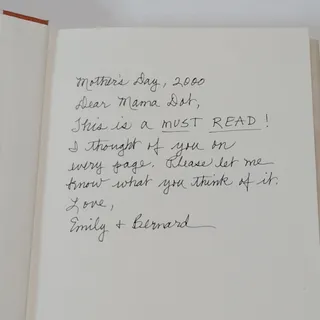 Mother's Day, 2000
Dear Mama Dot,
This is a MUST READ!
I thought of you on
every page. Please let me
know what you think of it.
Love,
Emily + Bernard